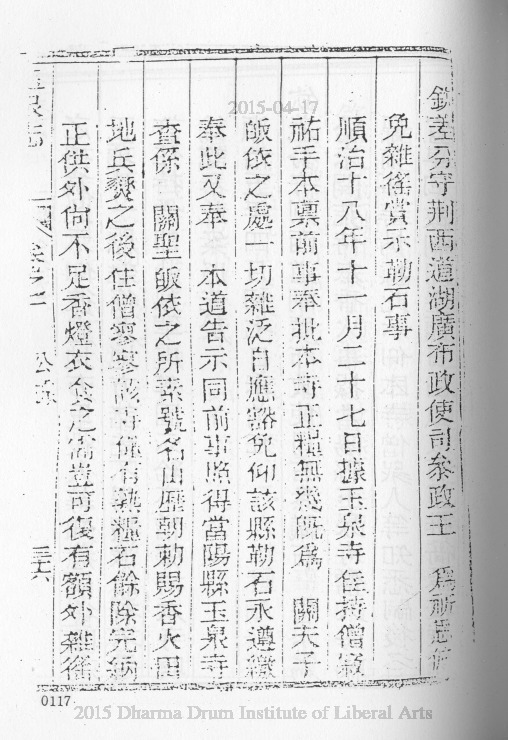 欽差分守荆西道湖廣布政使司叅政王 爲祈恩
免雜徭賞示勒石事
順治十八年十一月二十七日據玉泉寺住持僧寂
祐手本稟前事奉批本寺正糧無幾既爲 關夫子
皈依之處一切雜泛自應豁免仰該縣勒石永遵繳
奉此又奉 本道告示同前事照得當陽縣玉泉寺
查係 關聖皈依之所素號名山歷朝勅賜香火田
地兵燹之後住僧寥寥該寺僅有熟糧石餘除完納
正供外尙不足香燈衣食之需豈可復有額外雜徭
玉泉志
卷之
公移
三六
0117
2015-04-17
2015 Dharma Drum Institute of Liberal Arts